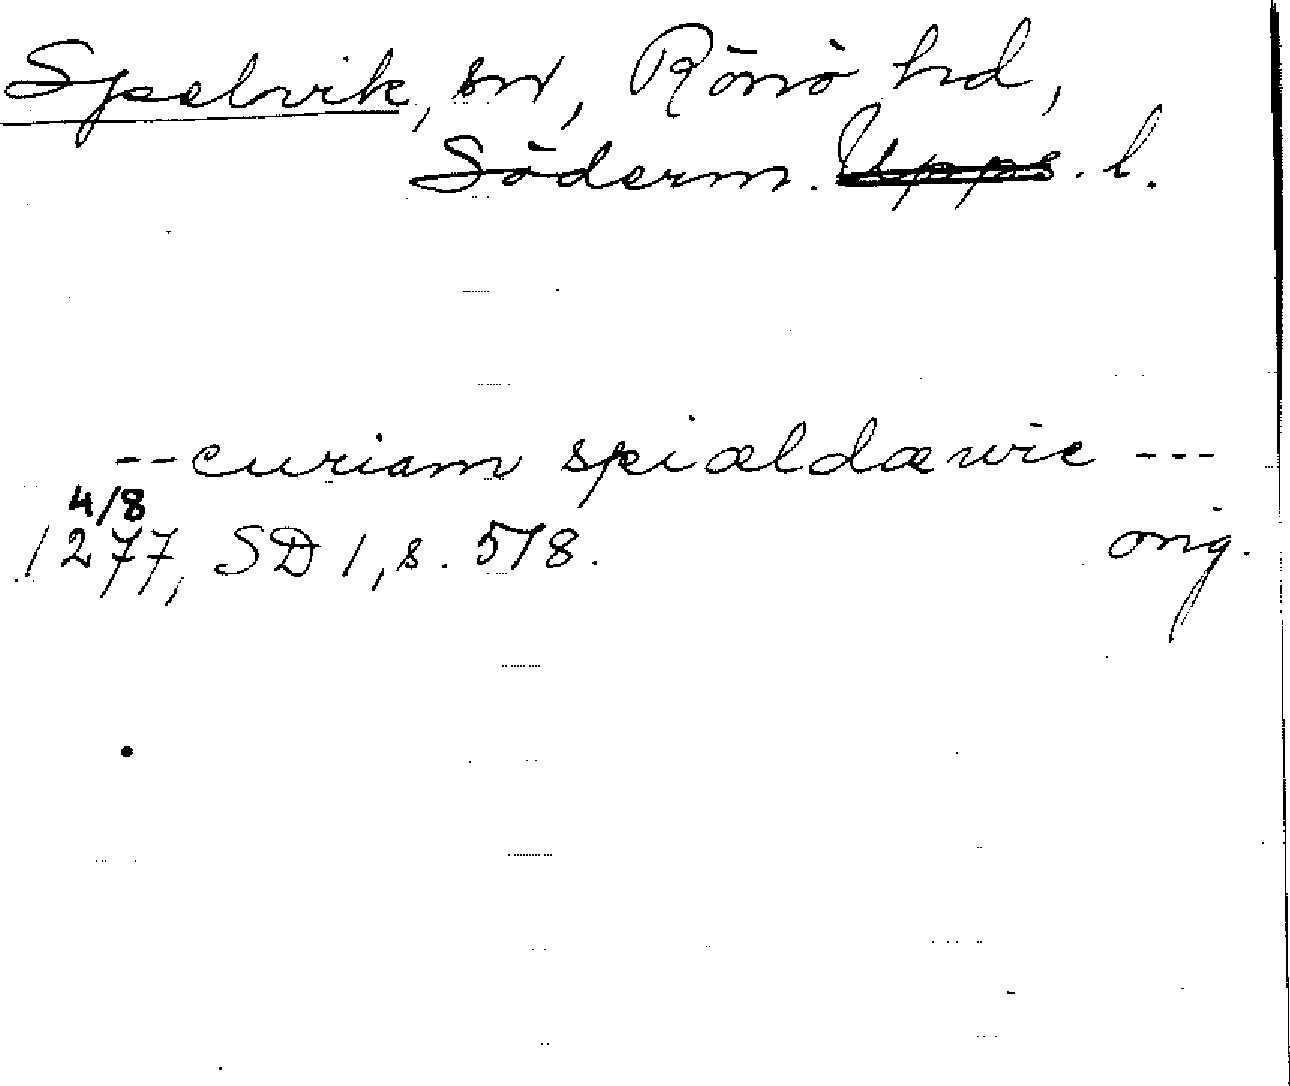 Spelvik, sn, Rönö hd,
Söderm. Upps. l.
-- curiam spiældæwic ---
4/8
1277, SD 1, s. 518. orig.